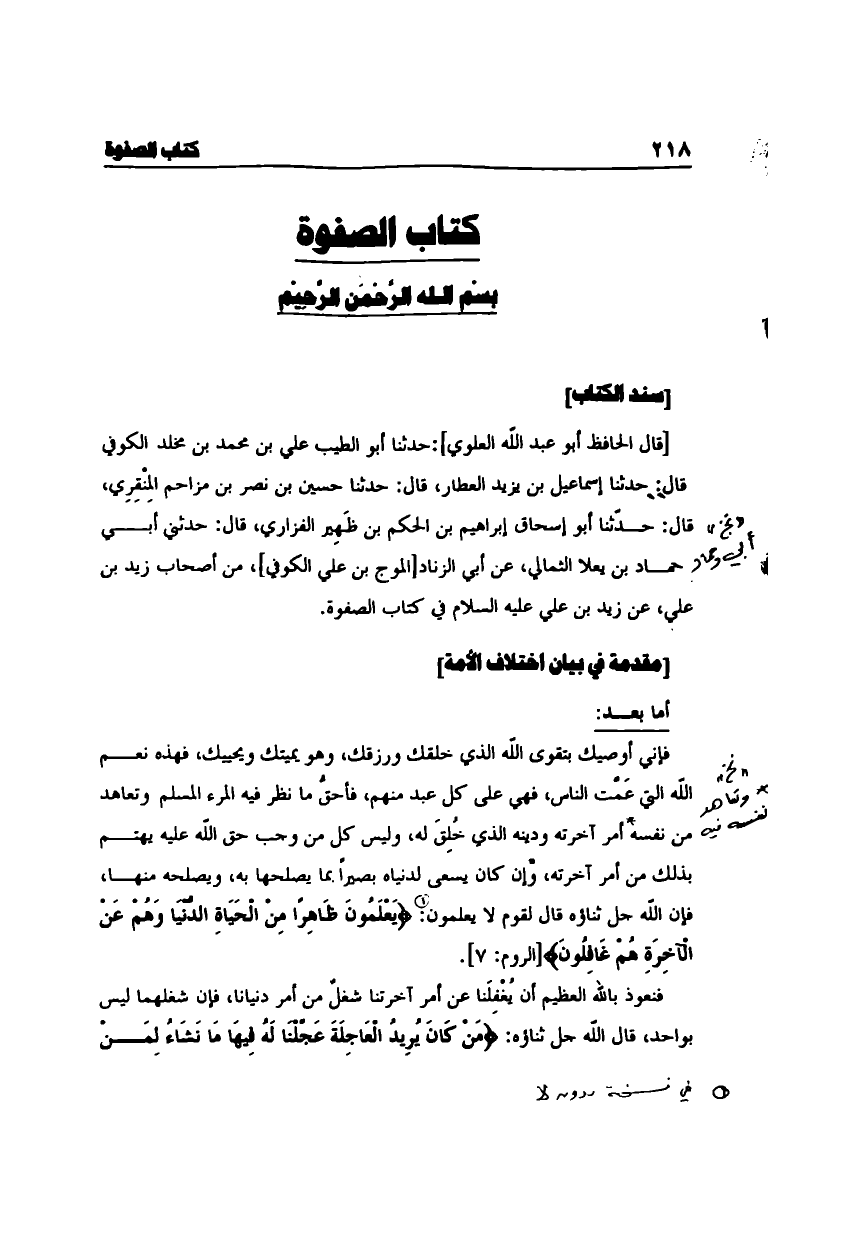 ٢١٨ كتاب الصفوة
كتاب الصفوة
بِسْمِ اللَّه الرَّحْمَن الرَّحِيْم
[سند الكتاب]
[قال الحافظ أبو عبد الله العلوي]:حدثنا أبو الطيب علي بن محمد بن مخلد الكوفي
قال: حدثنا إسماعيل بن يزيد العطار، قال: حدثنا حسين بن نصر بن مزاحم المِنْقِري،
قال: حـدّثنا أبو إسحاق إبراهيم بن الحكم بن ظَهِير الفزاري، قال: حدثني أبـــي
حمـاد بن يعلا الثمالي، عن أبي الزناد[الموج بن علي الكوفي]، من أصحاب زيد بن
علي، عن زيد بن علي عليه السلام في كتاب الصفوة.
[مقدمة في بيان اختلاف الأمة]
أما بعـــد:
فإني أوصيك بتقوى الله الذي خلقك ورزقك، وهو يميتك ويحييك، فهذه نعـــم
الله التي عَمَّت الناس، فهي على كل عبد منهم، فأحقُّ ما نظر فيه المرء المسلم وتعاهد
من نفسه أمر آخرته ودينه الذي خُلِقَ له، وليس كل من وجب حق الله عليه يهتـــم
بذلك من أمر آخرته، وإن كان يسعى لدنياه بصيراً بما يصلحها به، ويصلحه منهـــا،
فإن الله جل ثناؤه قال لقوم لا يعلمون: ① ﴿يَعْلَمُونَ ظَاهِرًا مِنْ الْحَيَاةِ الدُّنْيَا وَهُمْ عَنْ
الْآخِرَةِ هُمْ غَافِلُونَ﴾[الروم: ٧].
فنعوذ بالله العظيم أن يُغْفِلَنا عن أمر آخرتنا شغلٌ من أمر دنيانا، فإن شغلهما ليس
بواحد، قال الله جل ثناؤه: ﴿مَنْ كَانَ يُرِيدُ الْعَاجِلَةَ عَجَّلْنَا لَهُ فِيهَا مَا نَشَاءُ لِمَـــنْ
① في نسخة بدون لا